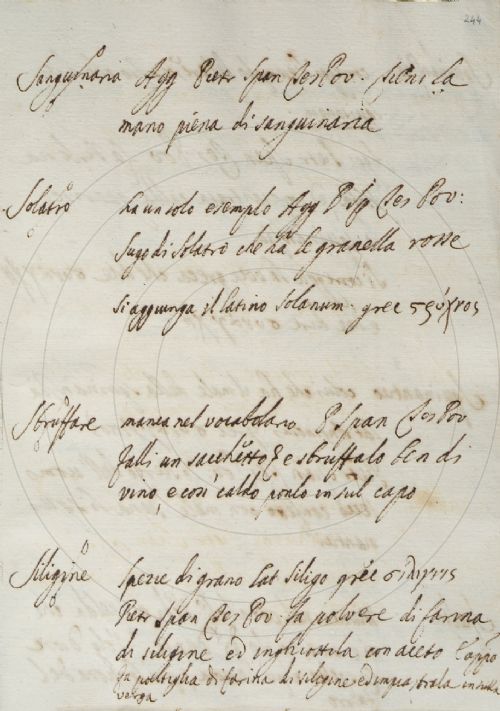 244
Sanguinaria Agg Pietr Span Tes Pov. tieni la
mano piena di sanguinaria
Solatro ha un solo esemplo Agg P Sp Tes Pov:
sugo di Solatro che ha le granella rosse
si aggiunga il latino Solanum. grec
Sbruffare manca nel vocabolario P Span Tes Pov
falli un sacchetto e sbruffalo ben di
vino, e così caldo ponlo in sul capo
Siligine spezie di grano Lat Siligo grec
Pietr Span Tes Pov. fa polvere di farina
di siligine ed inghiottila con aceto
fa poltiglia di farina di siligine ed in sulla
verga